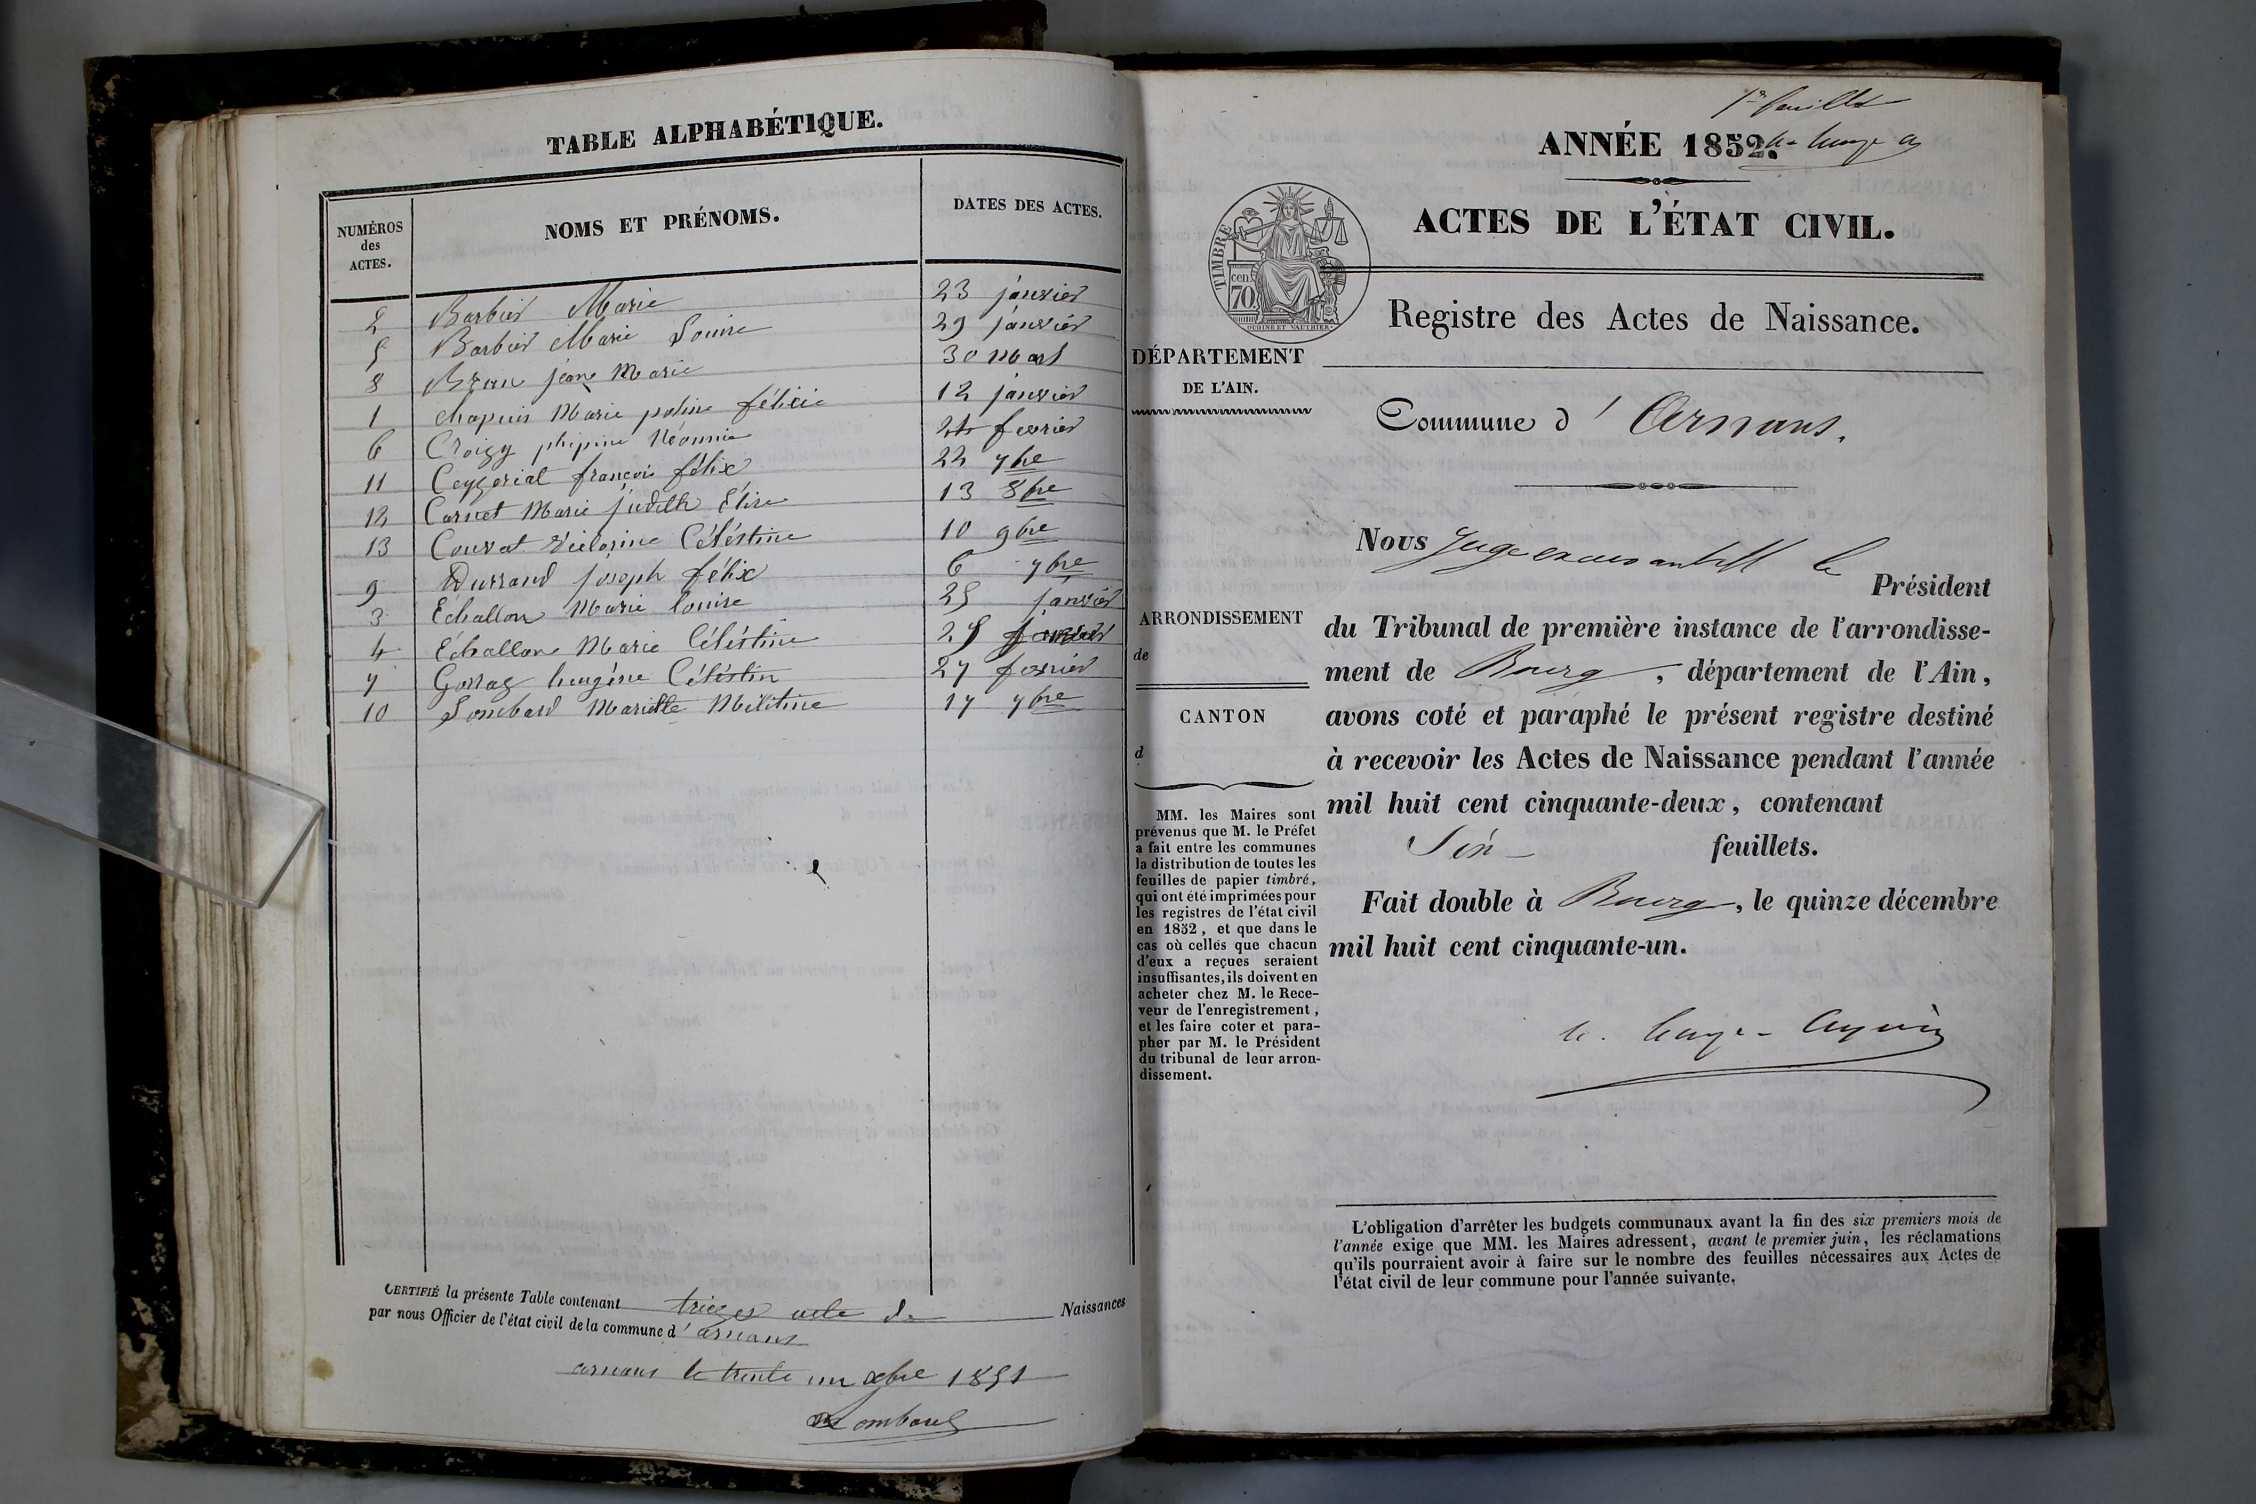 TABLE ALPHABÉTIQUE.
NUMÉROS des ACTES. NOMS ET PRÉNOMS. DATES DES ACTES.
2 Barbier Marie 23 janvier
5 Barbier Marie Louise 29 janvier
8 Brun jean Marie 30 Mars
1 Chapuis Marie poline félicie 12 janvier
6 Croizy phipine Néomie 24 fevrier
11 Ceyzeriat françois félix 22 7bre
12 Carnet Marie judith Elise 13 8bre
13 Convat Victorine Céléstine 10 9bre
9 Durrand joseph félix 6 7bre
3 Echallon Marie louise 25 janvier
4 Echallon Marie Céléstine 25 janvier
7 Céléstin 27 fevrier
10 Lombard Mariette Mélitine 17 7bre
CERTIFIÉ la présente Table contenant treizes acte de Naissances
par nous Officier de l'état civil de la commune d' arnans
arnans le trente un xbre 1851
Lombard
1er feuillet
ANNÉE 1852.
ACTES DE L'ÉTAT CIVIL.
TIMBRE
70 cen
OUDINE ET VAUTHIER
Registre des Actes de Naissance.
DÉPARTEMENT
DE L'AIN.
Commune d' Arnans.
Nous Juge le
Président
du Tribunal de première instance de l'arrondisse-
ment de Bourg, département de l'Ain,
avons coté et paraphé le présent registre destiné
à recevoir les Actes de Naissance pendant l'année
mil huit cent cinquante-deux, contenant
Six feuillets.
Fait double à Bourg, le quinze décembre
mil huit cent cinquante-un.
ARRONDISSEMENT
de
CANTON
d
MM. les Maires sont
prévenus que M. le Préfet
a fait entre les communes
la distribution de toutes les
feuilles de papier timbré,
qui ont été imprimées pour
les registres de l'état civil
en 1852, et que dans le
cas où celles que chacun
d'eux a reçues seraient
insuffisantes, ils doivent en
acheter chez M. le Rece-
veur de l'enregistrement,
et les faire coter et para-
pher par M. le Président
du tribunal de leur arron-
dissement.
L'obligation d'arrêter les budgets communaux avant la fin des six premiers mois de
l'année exige que MM. les Maires adressent, avant le premier juin, les réclamations
qu'ils pourraient avoir à faire sur le nombre des feuilles nécessaires aux Actes de
l'état civil de leur commune pour l'année suivante.